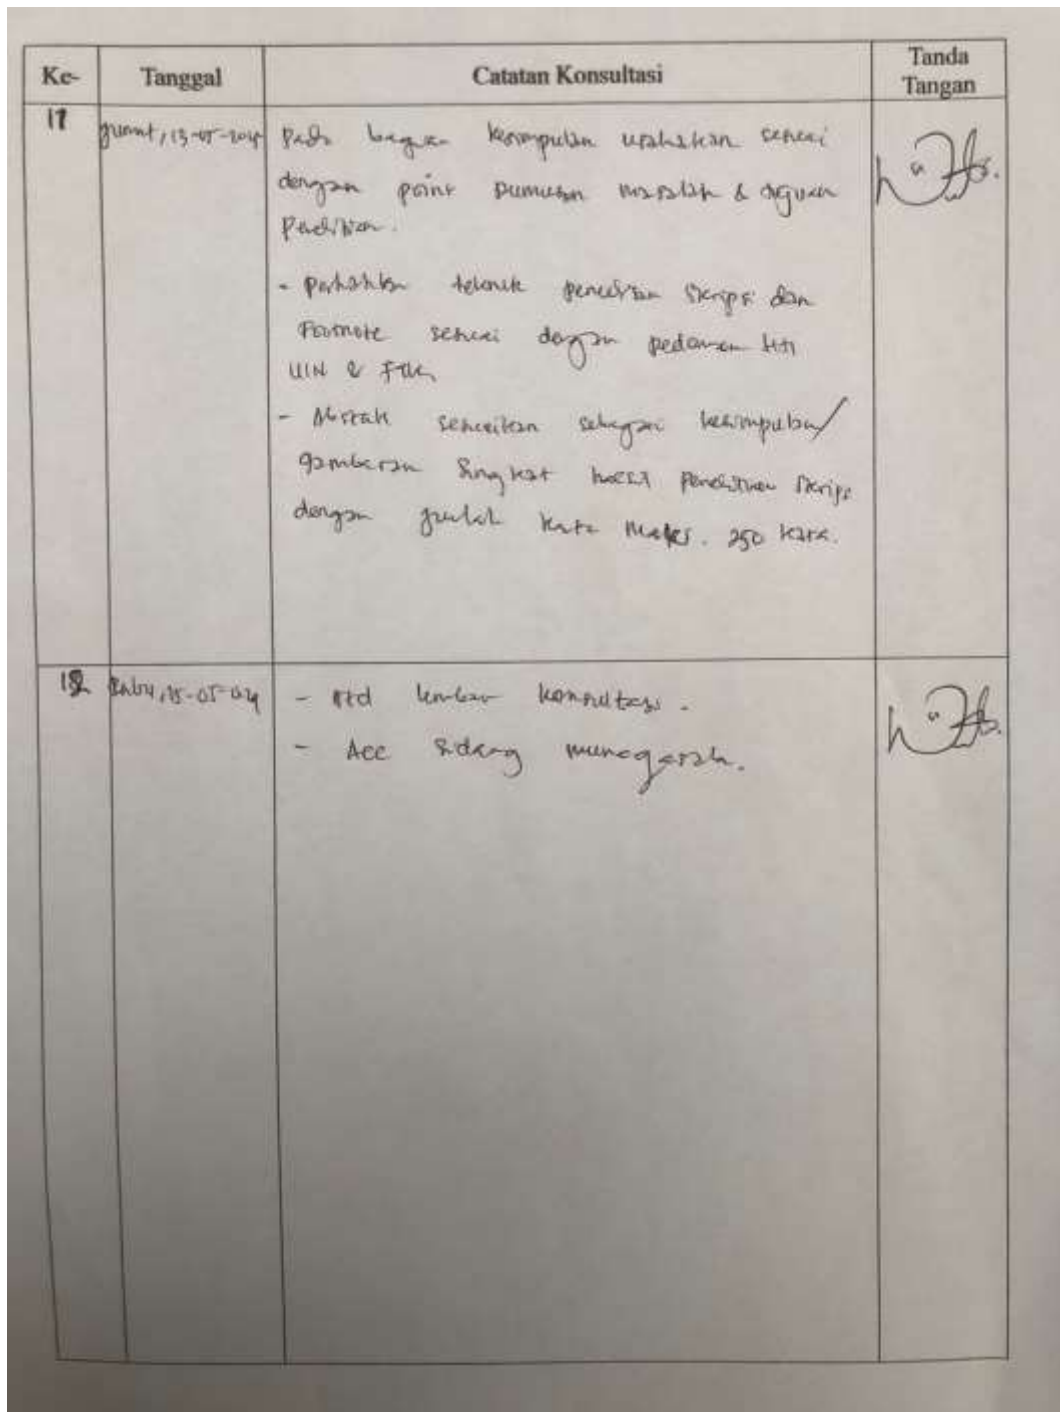 Ke- Tanggal Catatan Konsultasi Tanda Tangan
11 Jumat, 13-05-2024 Pada bagian kesimpulan usahakan sesuai
dengan point rumusan masalah & tujuan
Penelitian.
- Perhatikan teknik penulisan skripsi dan
Footnote sesuai dengan pedoman
UIN & FTK
- Abstrak sesuaikan sebagai kesimpulan/
gambaran singkat hasil penelitian skripsi
dengan jumlah kata maks. 250 kata.
12 Rabu, 15-05-024 - ttd lembar konsultasi.
- Acc Sidang munaqasah.